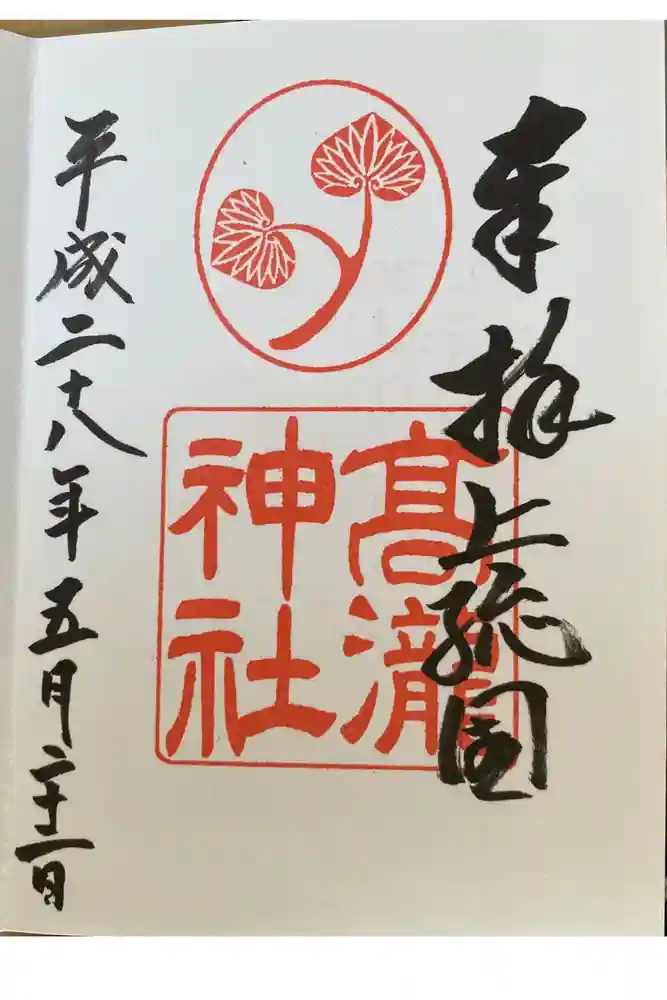 奉拝上総国
髙瀧
神社
平成二十八年五月二十一日